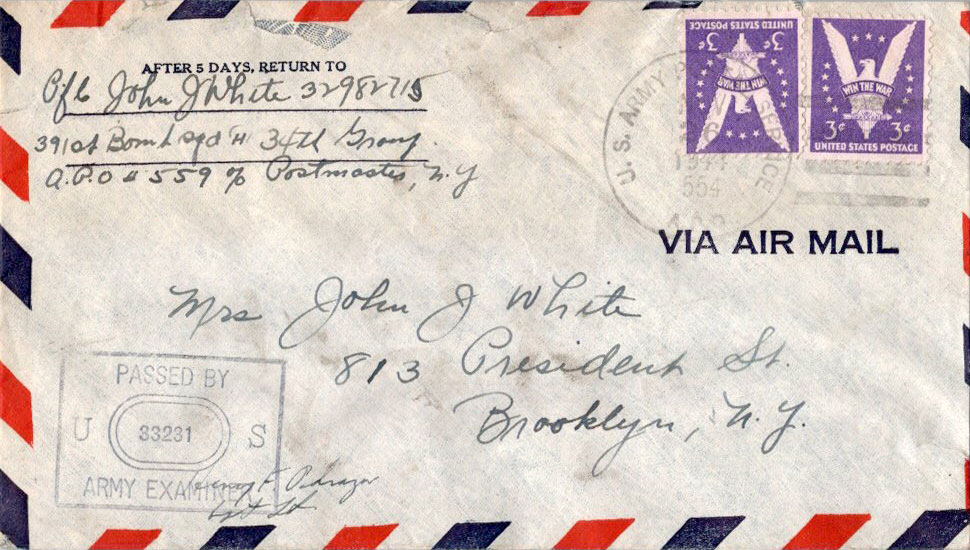 AFTER 5 DAYS, RETURN TO
Pfc John J White 32982715
391st Bomb Sqd H 34th Group.
A.P.O # 559 % Postmaster, N.Y
UNITED STATES POSTAGE
3¢ 3¢
WIN THE WAR
WIN THE WAR
3¢ 3¢
UNITED STATES POSTAGE
U. S. ARMY SERVICE
6
1944
554
VIA AIR MAIL
Mrs John J White
813 President St.
Brooklyn, N.Y.
PASSED BY
U 33231 S
ARMY EXAMINER